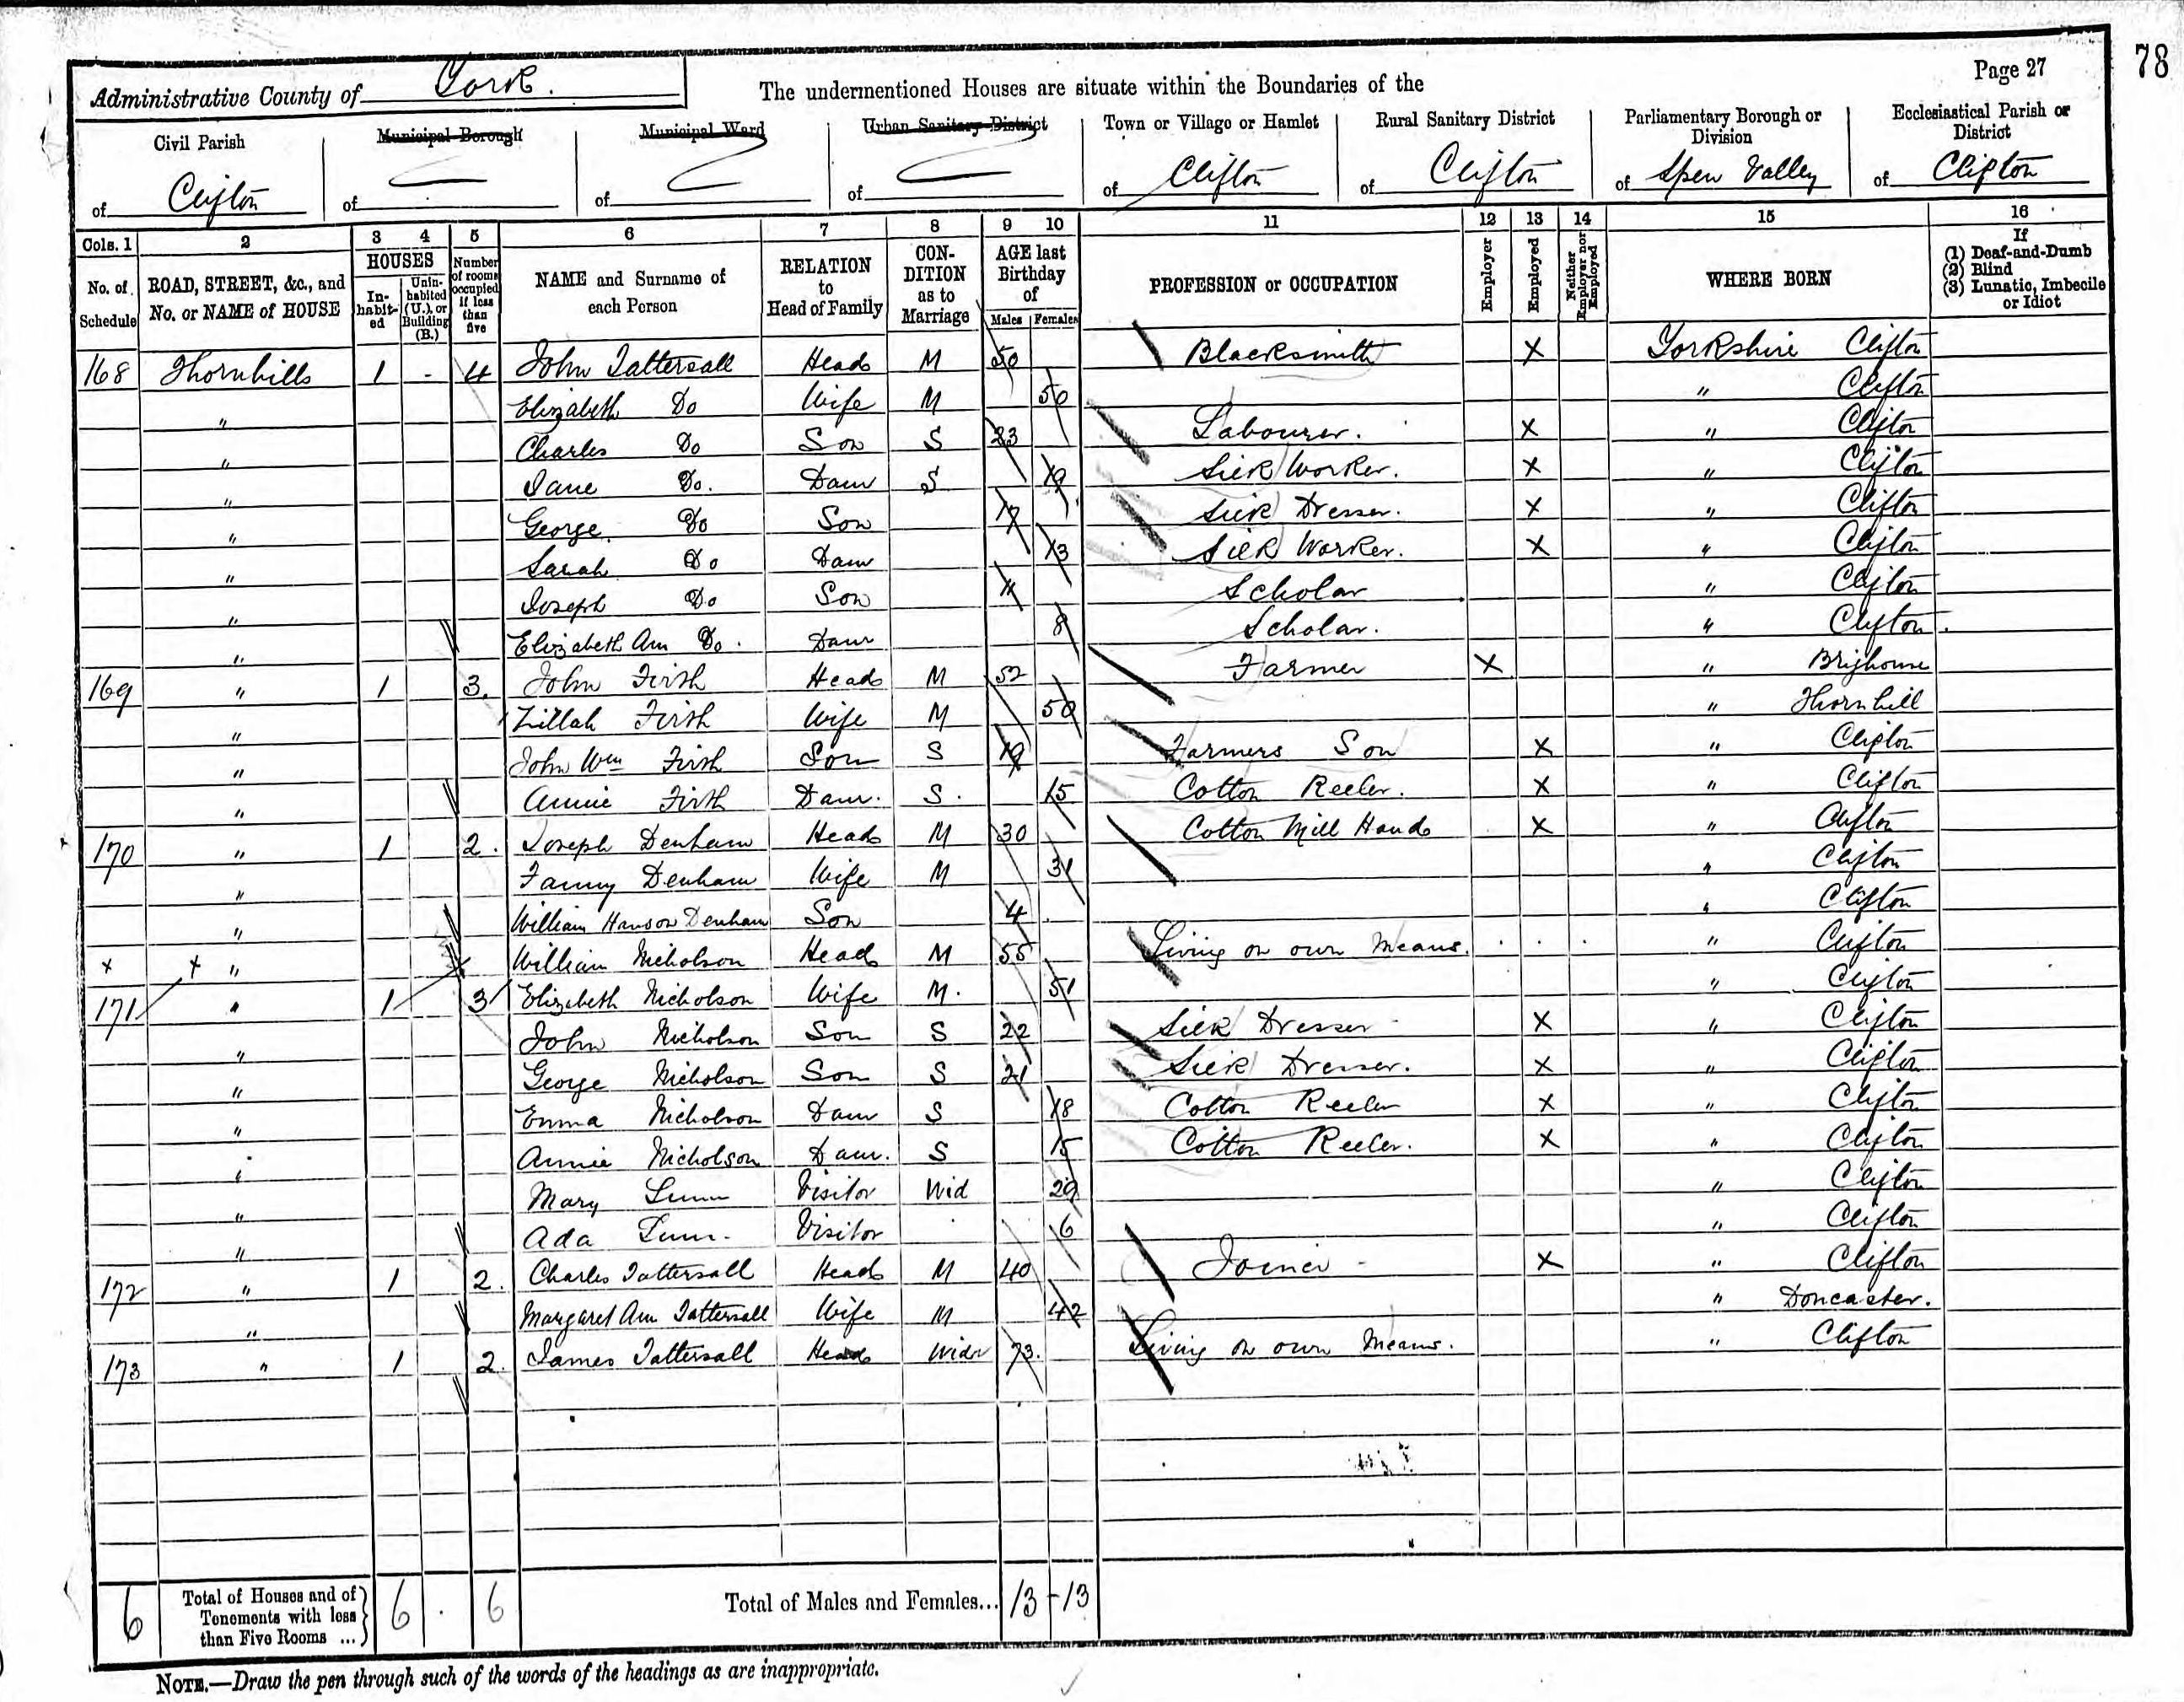 78
Page 27
Administrative County of York.
The undermentioned Houses are situate within the Boundaries of the
Civil Parish
Municipal Borough
Municipal Ward
Urban Sanitary District
Town or Village or Hamlet
Rural Sanitary District
Parliamentary Borough or Division
Ecclesiastical Parish or District
of Clifton of of of of Clifton of Clifton of Spen Valley of Clifton
Cols. 1 2 3 4 5 6 7 8 9 10 11 12 13 14 15 16
No. of Schedule
ROAD, STREET, &c., and No. or NAME of HOUSE
HOUSES
In-habit-ed
Unin-habited (U.), or Building (B.)
Number of rooms occupied if less than five
NAME and Surname of each Person
RELATION to Head of Family
CON-DITION as to Marriage
AGE last Birthday of
Males Females
PROFESSION or OCCUPATION
Employer
Employed
Neither Employer nor Employed
WHERE BORN
If
(1) Deaf-and-Dumb
(2) Blind
(3) Lunatic, Imbecile or Idiot
168 Thornhills 1 - 4 John Tattersall Head M 50 Blacksmith X Yorkshire Clifton
" Elizabeth Do Wife M 50 " Clifton
" Charles Do Son S 23 Labourer. X " Clifton
" Jane Do. Daur S 19 Silk Worker. X " Clifton
" George Do Son 17 Silk Dresser. X " Clifton
" Sarah Do Daur 13 Silk Worker. X " Clifton
" Joseph Do Son 11 Scholar " Clifton
" Elizabeth Ann Do. Daur 8 Scholar. " Clifton
169 " 1 3. John Firth Head M 52 Farmer X " Brighouse
" Zillah Firth Wife M 50 " Thornhill
" John Wm Firth Son S 19 Farmers Son X " Clifton
" Annie Firth Daur. S. 15 Cotton Reeler. X " Clifton
170 " 1 2. Joseph Denham Head M 30 Cotton Mill Hand X " Clifton
" Fanny Denham Wife M 31 " Clifton
" William Hanson Denham Son 4 " Clifton
x x " William Nicholson Head M 55 Living on own Means. " Clifton
171 " 1 3 Elizabeth Nicholson Wife M. 51 " Clifton
" John Nicholson Son S 22 Silk Dresser X " Clifton
" George Nicholson Son S 21 Silk Dresser. X " Clifton
" Emma Nicholson Daur S 18 Cotton Reeler X " Clifton
" Annie Nicholson Daur. S 15 Cotton Reeler. X " Clifton
" Mary Lunn Visitor Wid 29 " Clifton
" Ada Lunn. Visitor 6 " Clifton
172 " 1 2. Charles Tattersall Head M 40 Joiner X " Clifton
" Margaret Ann Tattersall Wife M 42 " Doncaster.
173 " 1 2. James Tattersall Head Widr 73. Living on own Means. " Clifton
6 Total of Houses and of Tenements with less than Five Rooms ... 6 . 6 Total of Males and Females... 13 - 13
NOTE.—Draw the pen through such of the words of the headings as are inappropriate.